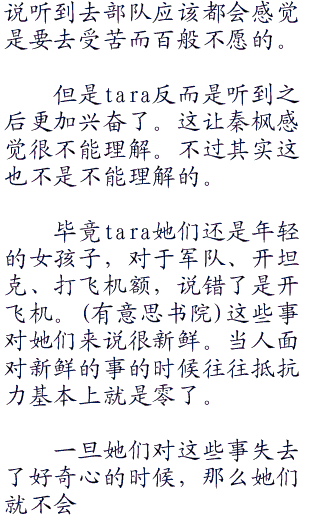 说听到去部队应该都会感觉
是要去受苦而百般不愿的。
但是tara反而是听到之
后更加兴奋了。这让秦枫感
觉很不能理解。不过其实这
也不是不能理解的。
毕竟tara她们还是年轻
的女孩子，对于军队、开坦
克、打飞机额，说错了是开
飞机。(有意思书院)这些事
对她们来说很新鲜。当人面
对新鲜的事的时候往往抵抗
力基本上就是零了。
一旦她们对这些事失去
了好奇心的时候，那么她们
就不会